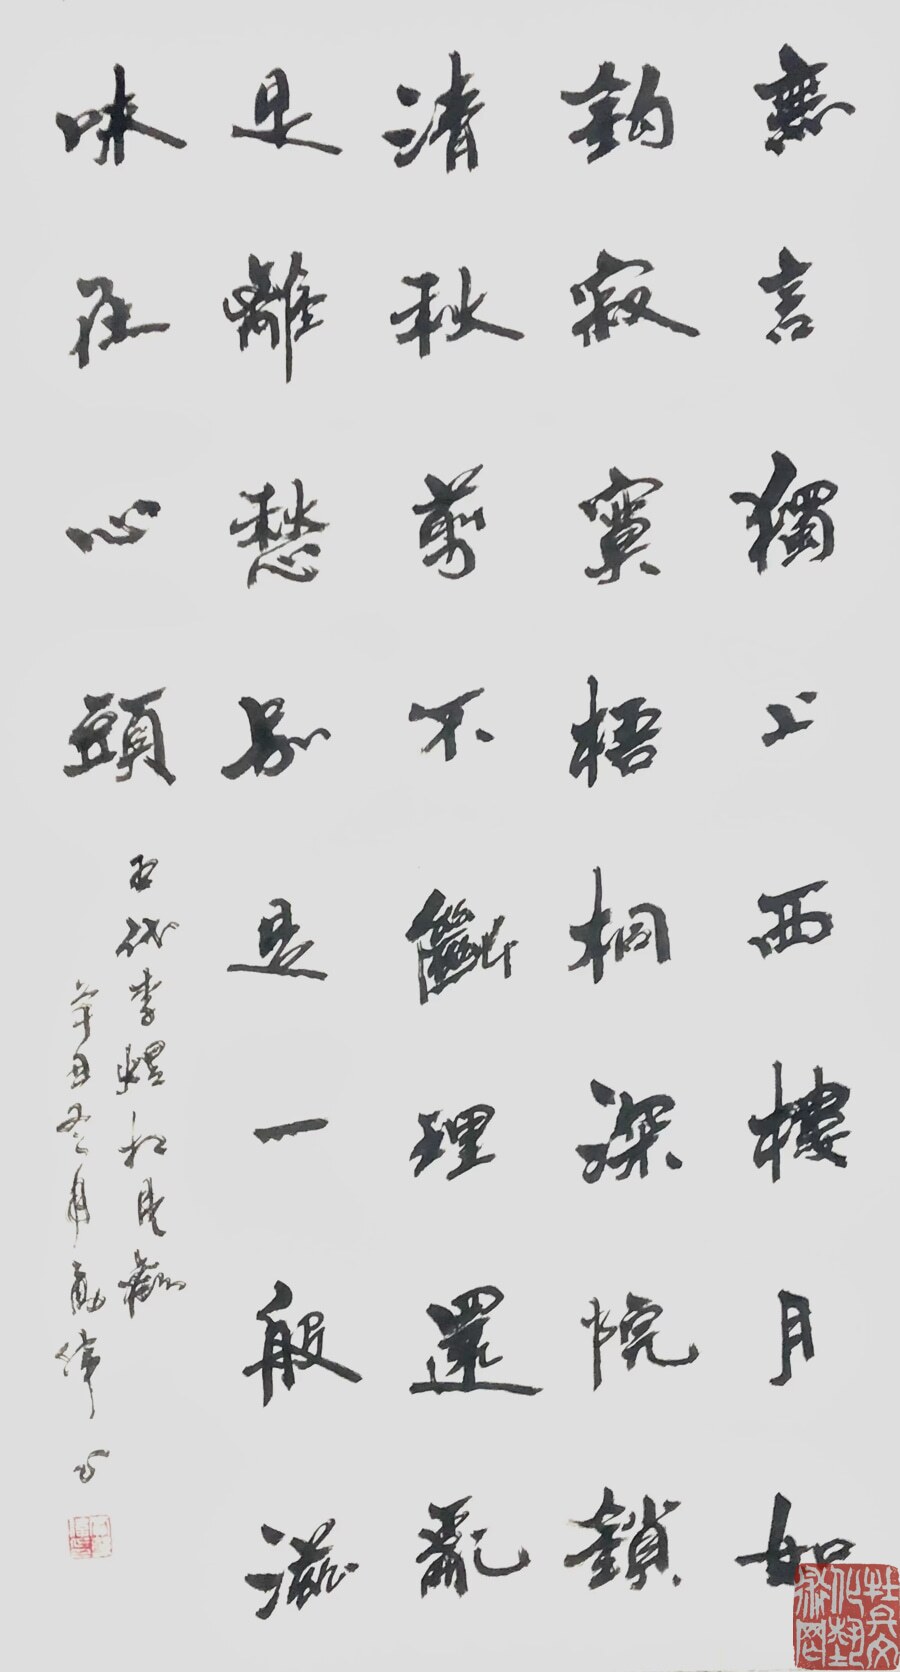 無言獨上西樓月如
鈎寂寞梧桐深院鎖
清秋剪不斷理還亂
是離愁別是一般滋
味在心頭
五代李煜相見歡
辛丑冬月勇偉書